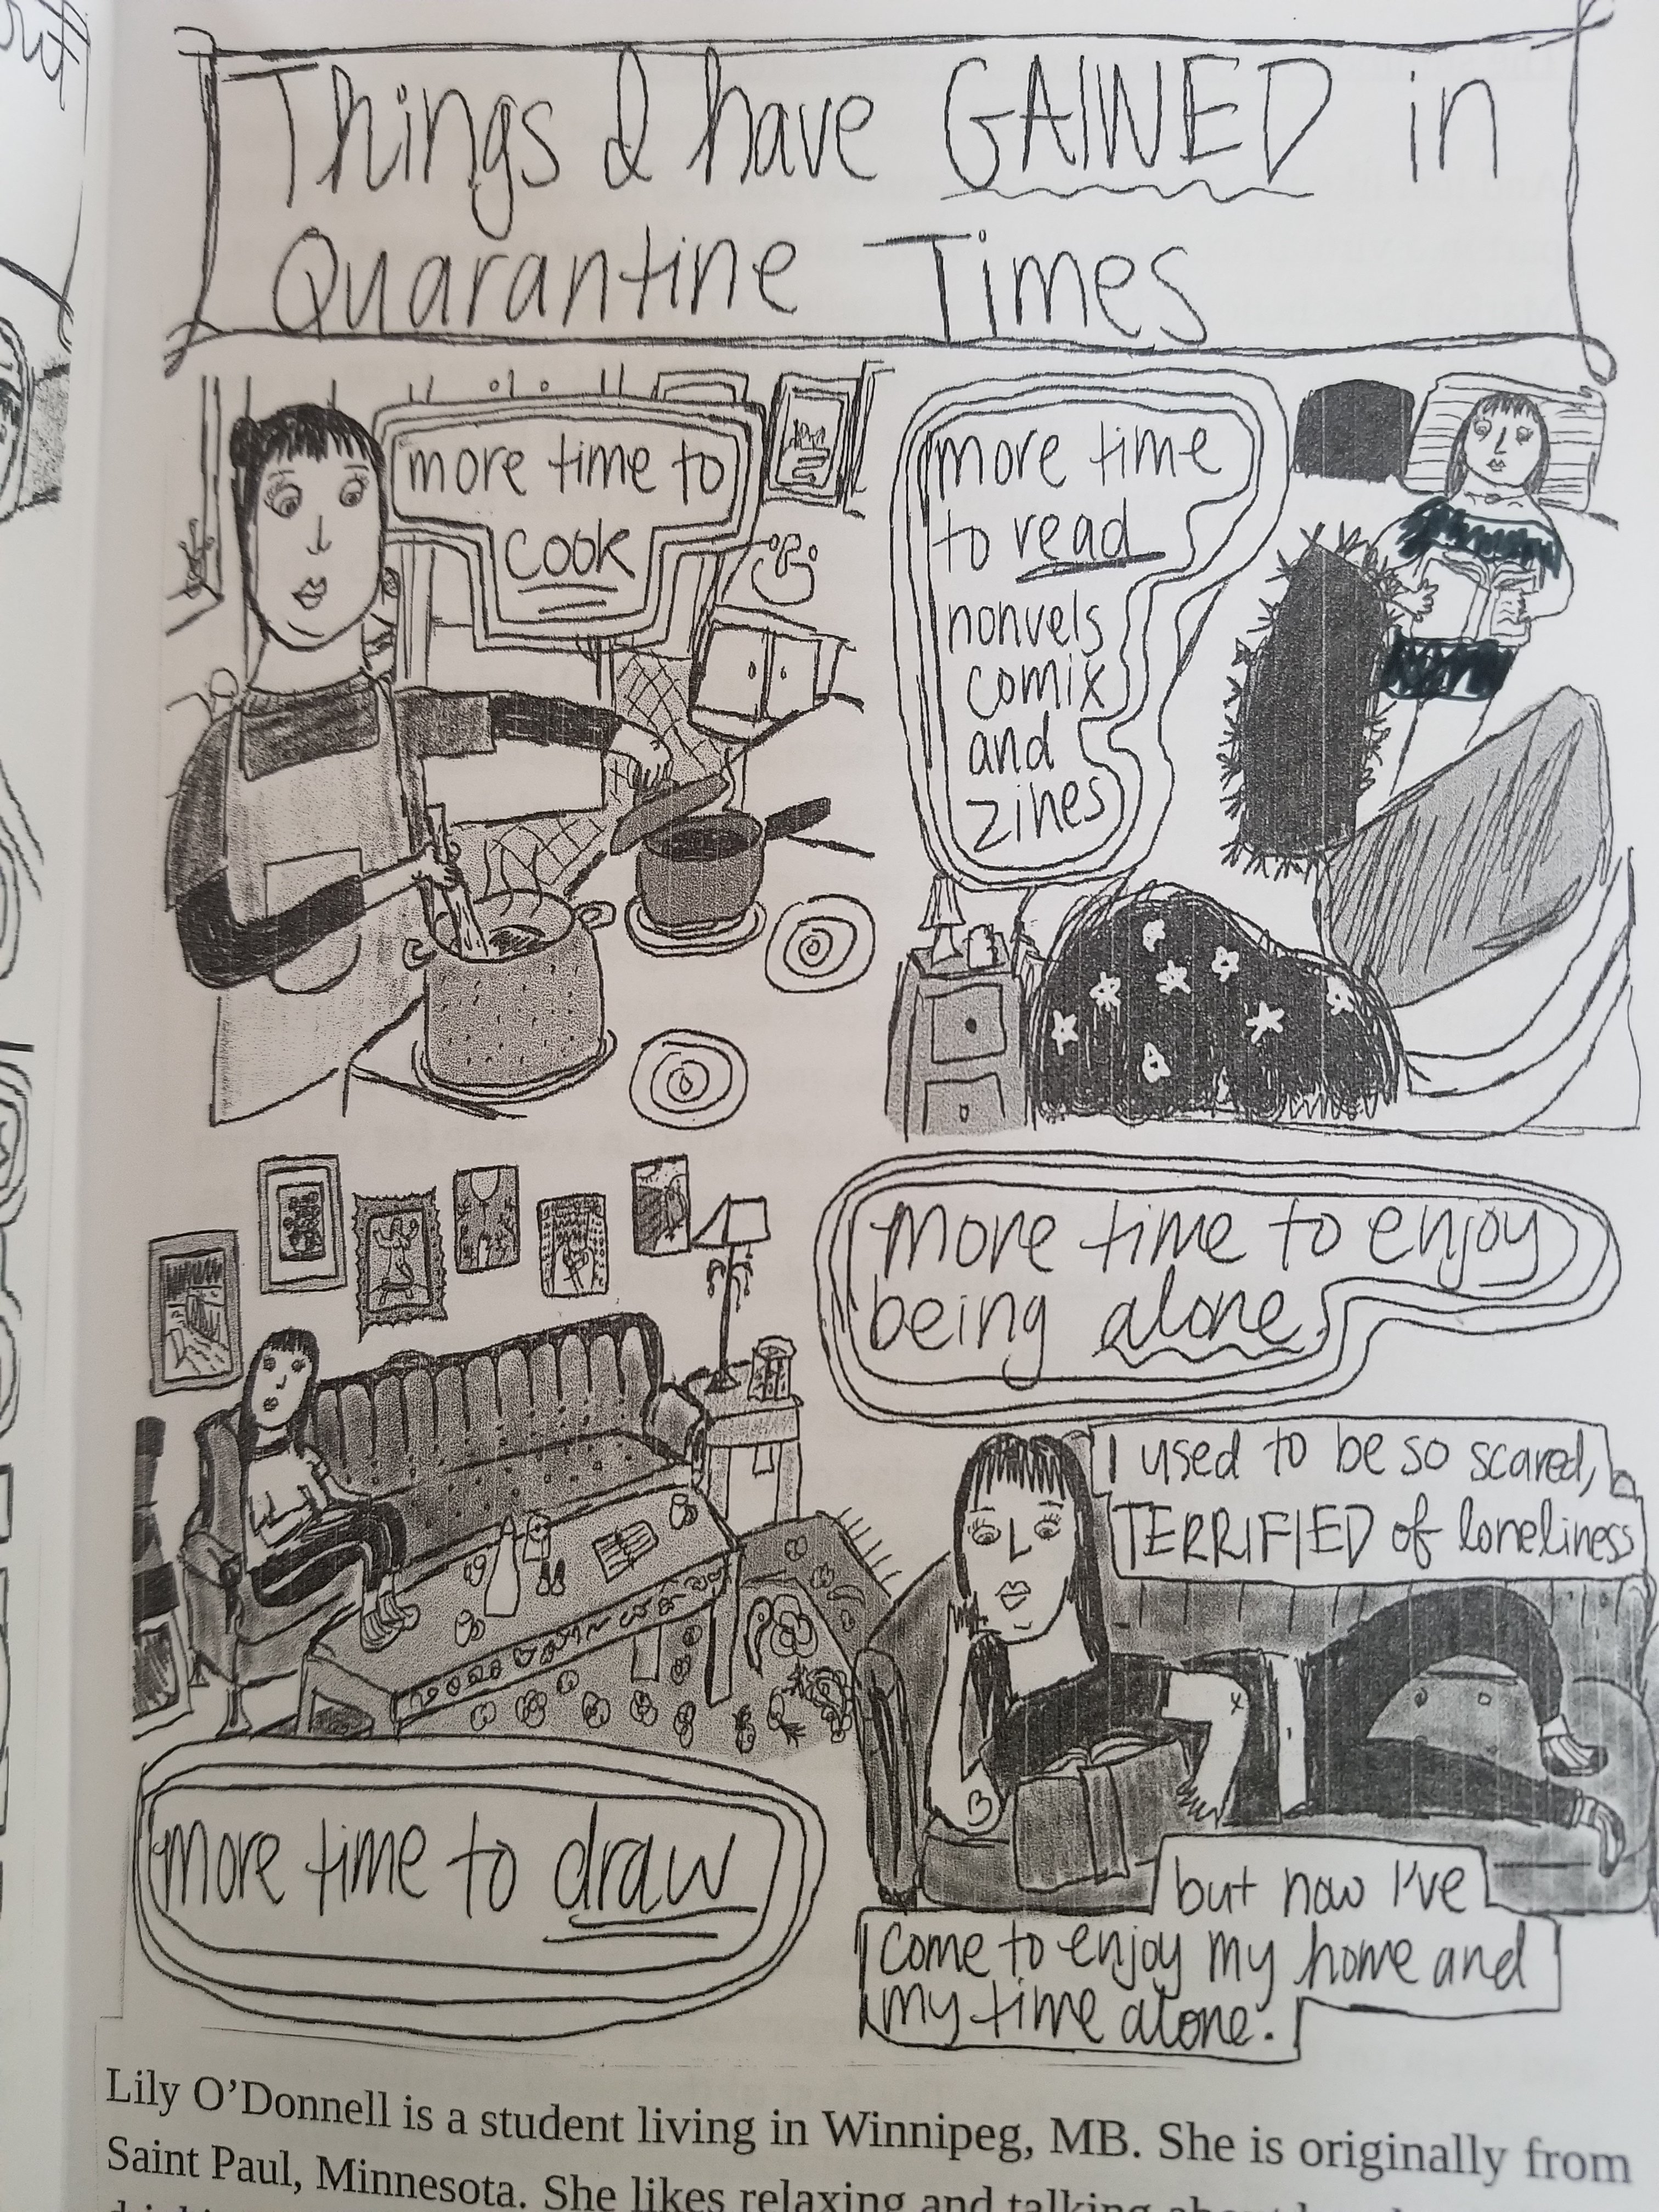 Things I have GAINED in
Quarantine Times
more time to
cook
more time
to read
nonvels
comix
and
zines
more time to enjoy
being alone
more time to draw
I used to be so scared,
TERRIFIED of loneliness
but now I've
come to enjoy my home and
my time alone.
Lily O'Donnell is a student living in Winnipeg, MB. She is originally from
Saint Paul, Minnesota. She likes relaxing and talking about